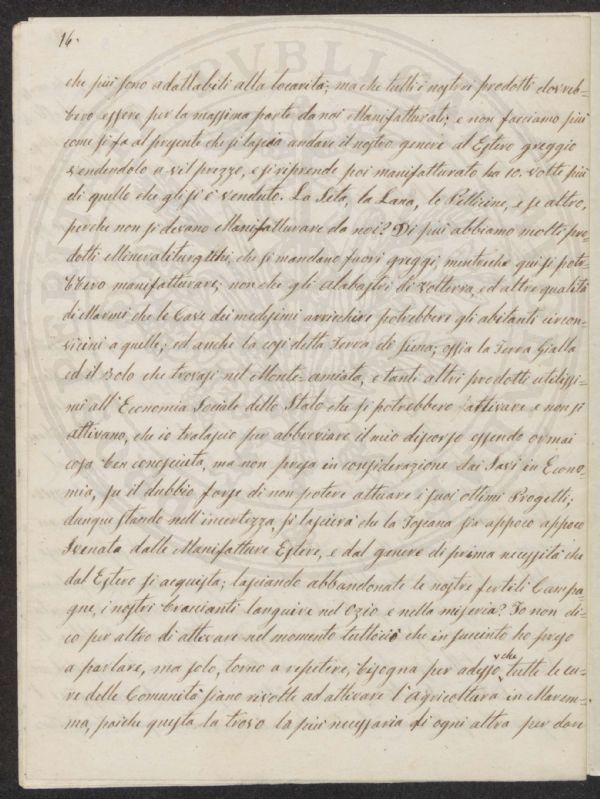 16.
che piu sono adattabili alla locarità; ma che tutti i nostri prodotti dovreb=
bero essere per la massima parte da noi Manifatturati; e non facciamo piu
come si fa al presente che si lascia andare il nostro genere al Estero greggio
vendendolo a vil prezzo, e si riprende poi manifatturato ha 10. volte piu
di quello che gli si è venduto. La Seta, la Lana, le Pelliccine, e se altro,
perche non si devano Manifatturare da noi? Di piui abbiamo molti pro=
dotti che si mandano fuori greggi, mentreche qui si potre
bbero manifatturare; non che gli Alabastri di Volterra, ed altre qualità
di Marmi che le Cave dei medesimi arricchire potrebbero gli abitanti circon=
vicini a quelle; ed anche la cosi detta Terra di Siena; ossia la Terra Gialla
ed il Bolo che trovasi nel Monte-amiata, e tanti altri prodotti utilissi=
mi all'Economia Sociale dello Stato che si potrebbero attivare e non si
attivano, che io tralascio per abbreviare il mio discorso essendo ormai
cosa ben conosciuta, ma non presa in considerazione dai Savi in Econo=
mia, su il dubbio forse di non potere attuare i suoi ottimi Progetti;
dunque stando nell'incertezza, si lascierà che la Toscana sia appoco appoco
Svenata dalle Manifatture Estere, e dal genere di prima necessità che
dal Estero si acquista; lasciando abbandonate le nostre fertili Campa=
gne, i nostri braccianti languire nel Ozio e nella miseria? Io non di=
co per altro di attivare nel momento tuttociò che in succinto ho preso
a parlare, ma solo, torno a repetere, bisogna per adesso che tutte le cu=
re delle Comunità siano rivolte ad attivare l'Agricoltura in Marem=
ma, poiche questa la trovo la piui necessaria di ogni altra per dare